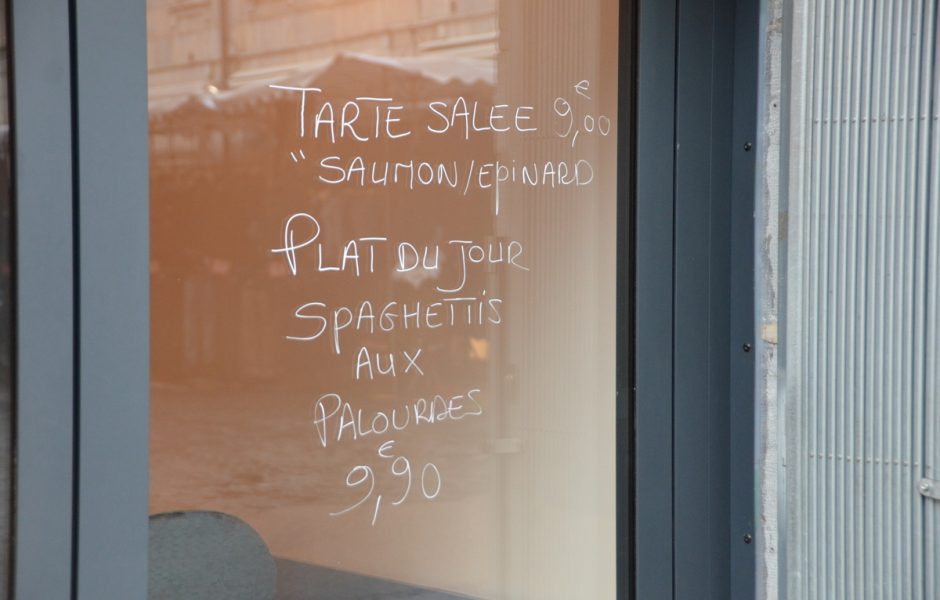 TARTE SALEE 9,€00
" SAUMON/EPINARD
PLAT DU JOUR
SPAGHETTIS
AUX
PALOURDES
9,€90